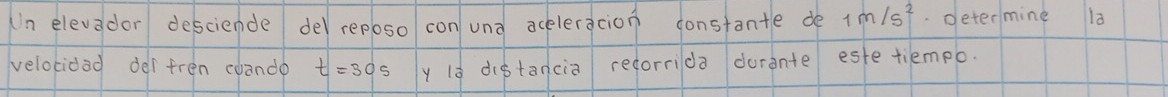 Un elevador desciende del reposo con una aceleración constante de 1m/s². Determine la
velocidad del tren cuando t=30s y la distancia recorrida durante este tiempo.